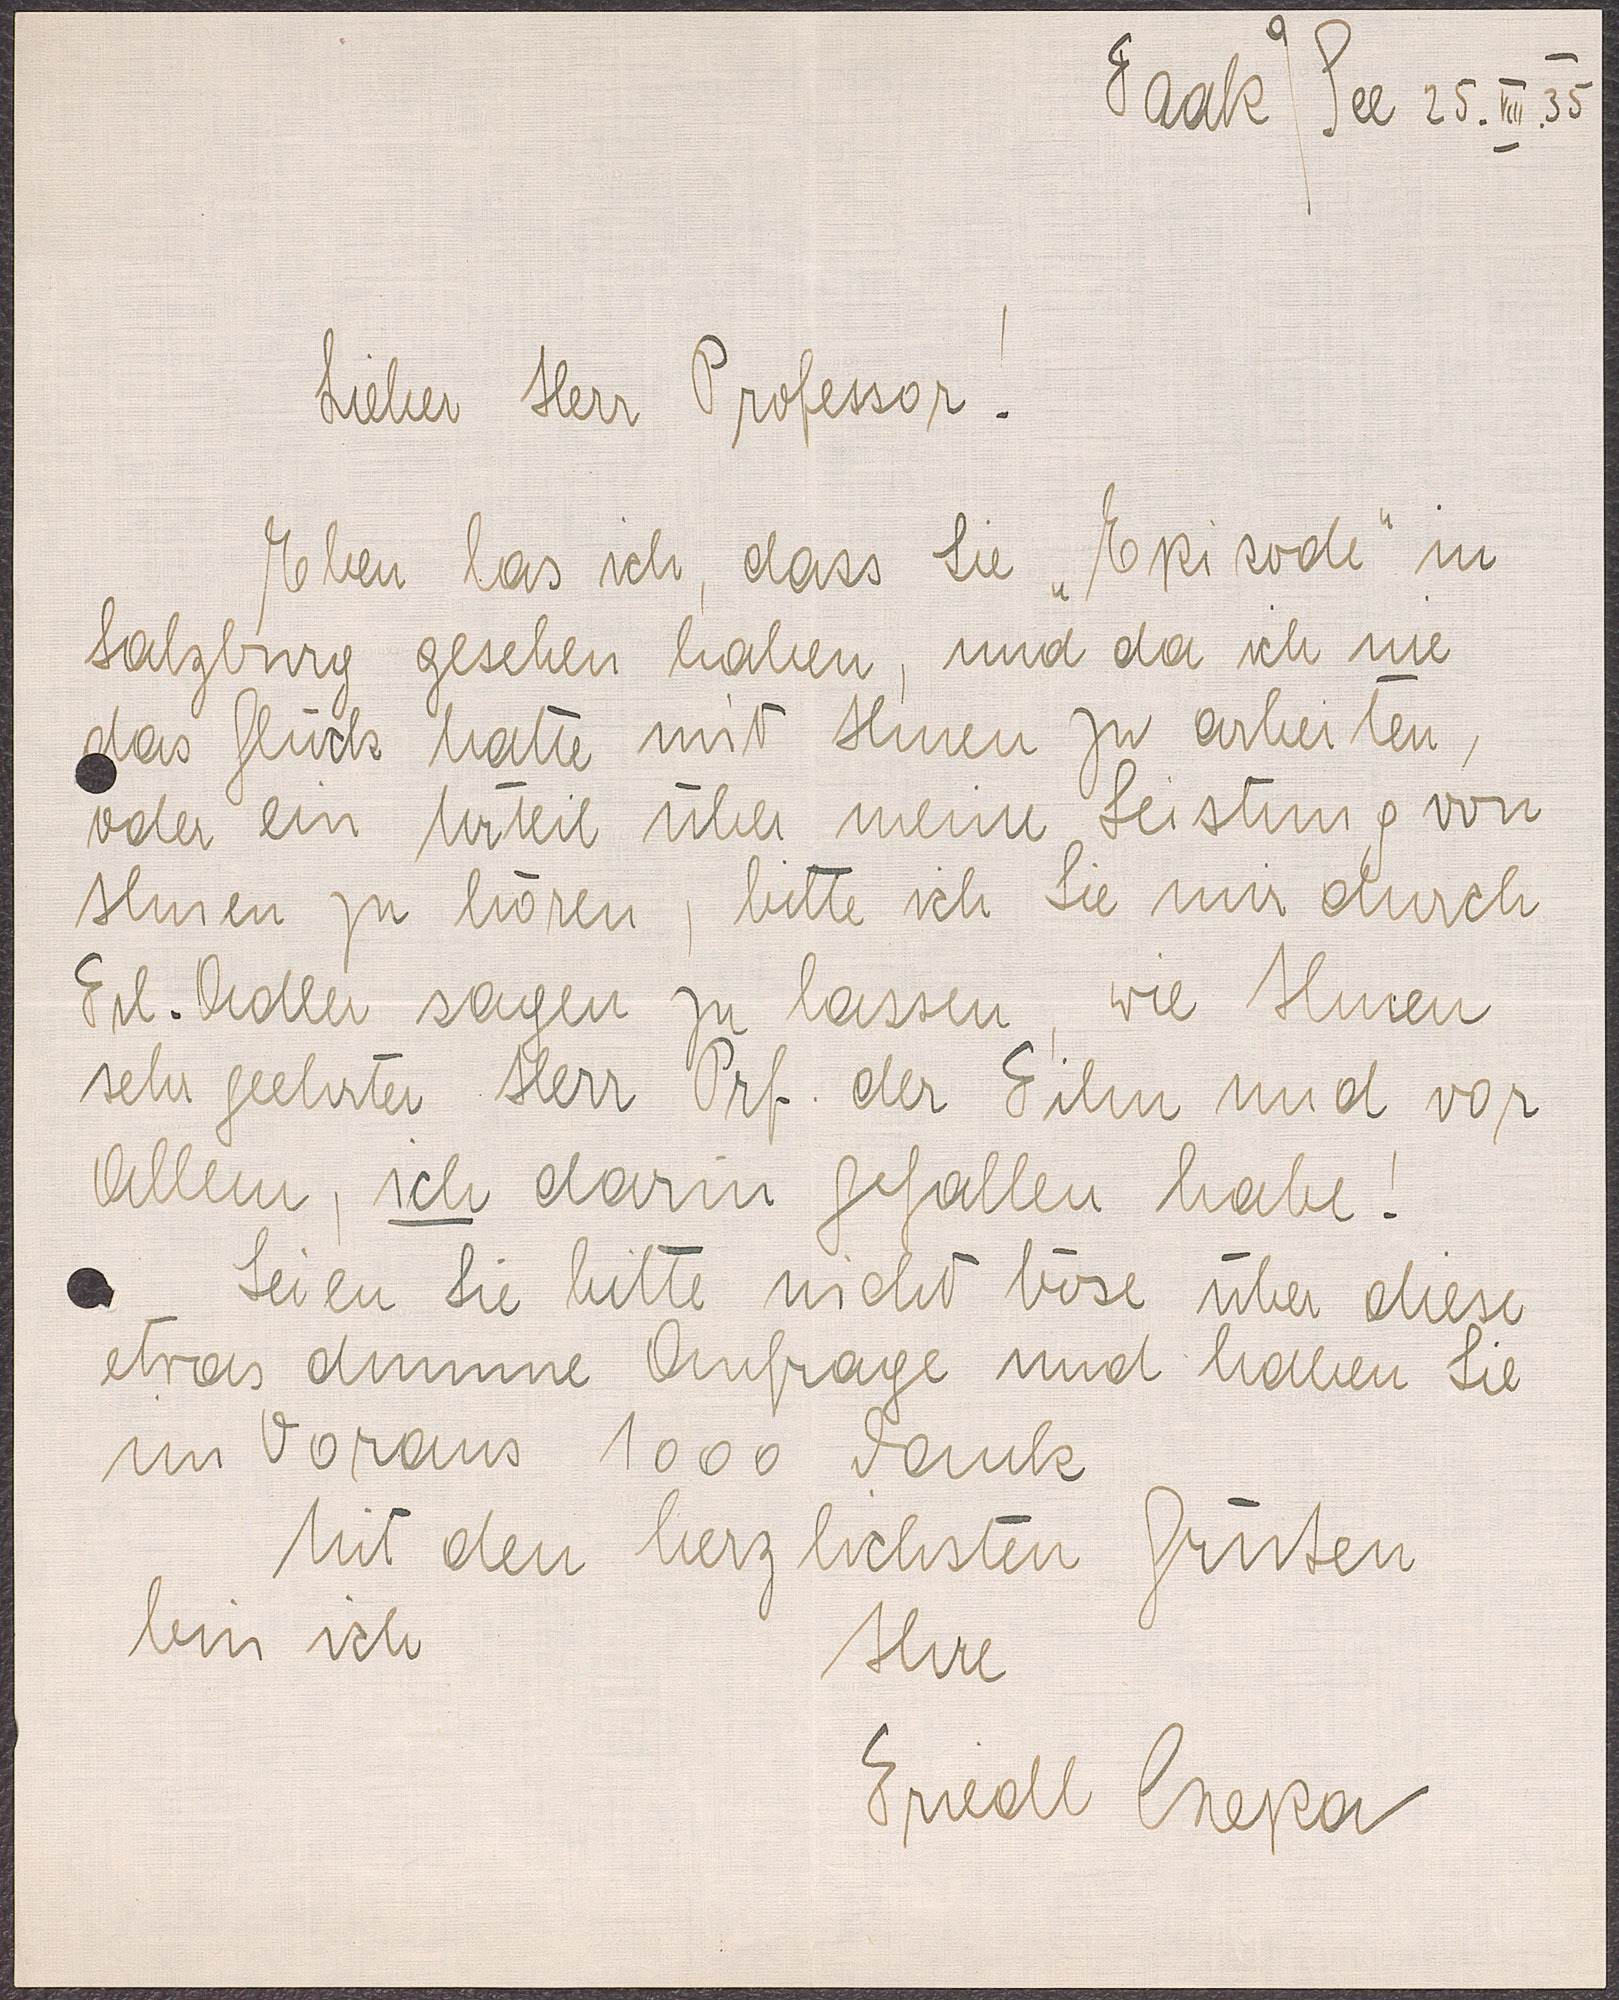 Faak a/See 25.VIII.35
Lieber Herr Professor!
Eben las ich, dass Sie „Episode" in
Salzburg gesehen haben, und da ich nie
das Glück hatte mit Ihnen zu arbeiten,
oder ein Urteil über meine Leistung von
Ihnen zu hören, bitte ich Sie mir durch
Frl. Adler sagen zu lassen, wie Ihnen
sehr geehrter Herr Prf. der Film und vor
Allem, ich darin gefallen habe!
Seien Sie bitte nicht böse über diese
etwas dumme Anfrage und haben Sie
im Voraus 1000 Dank
Mit den herzlichsten Grüßen
bin ich Ihre
Friedl Czepa